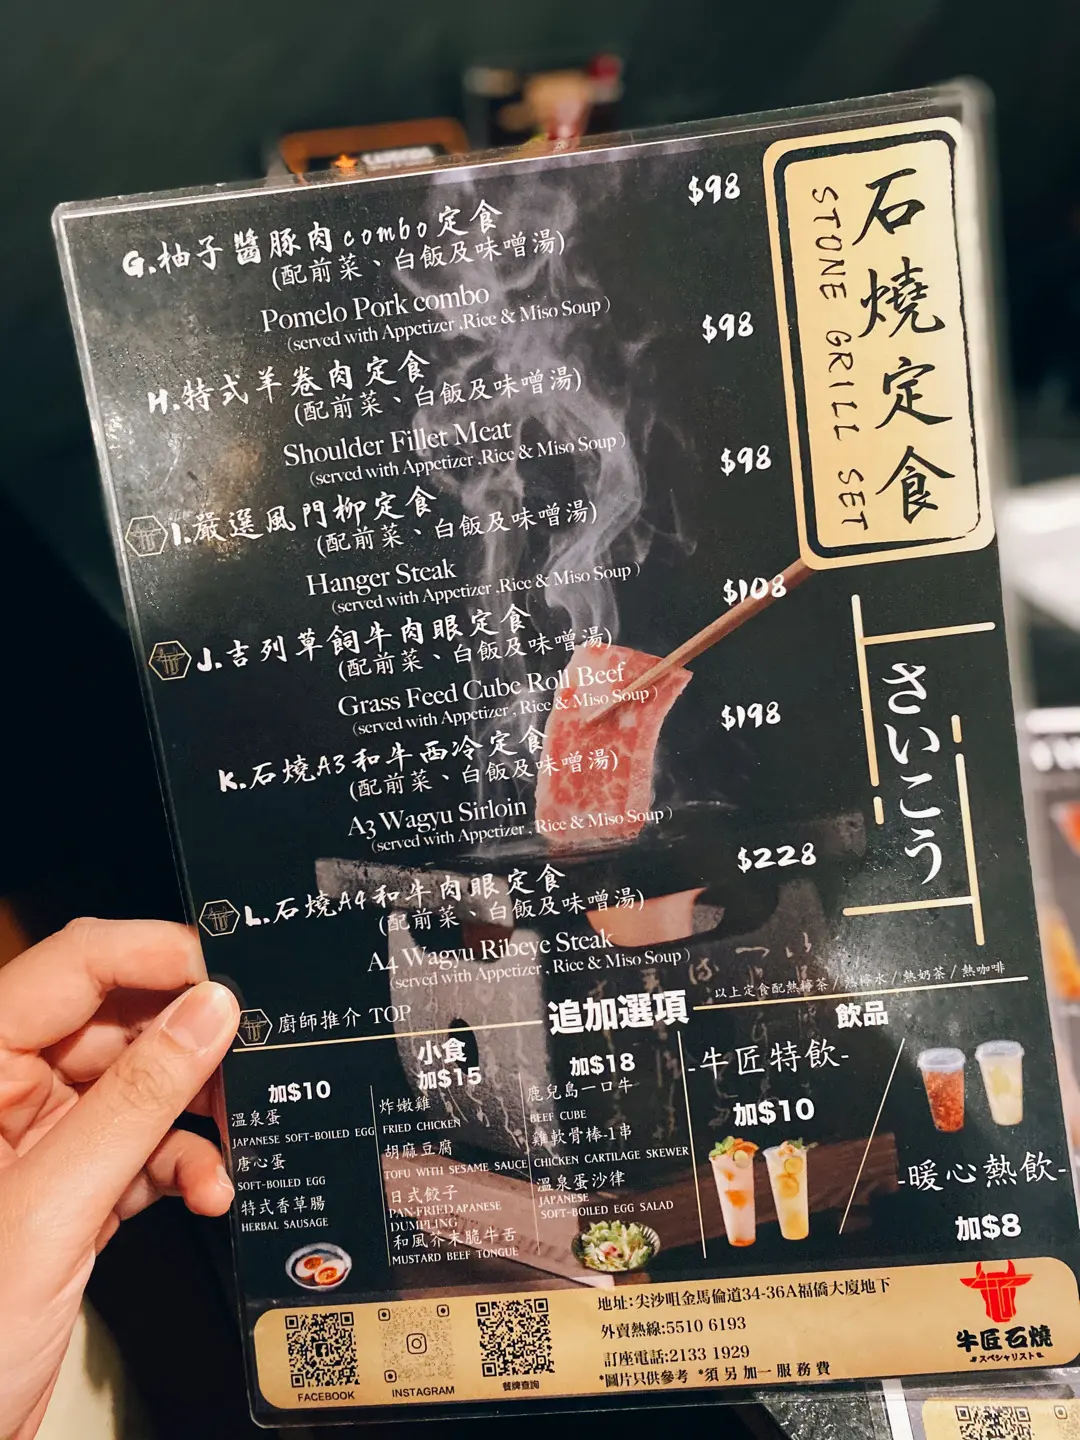 石燒定食
STONE GRILL SET
さいこう
G.柚子醬豚肉combo定食 $98
(配前菜、白飯及味噌湯)
Pomelo Pork combo
(served with Appetizer ,Rice & Miso Soup)
H.特式羊卷肉定食 $98
(配前菜、白飯及味噌湯)
Shoulder Fillet Meat
(served with Appetizer ,Rice & Miso Soup)
I.嚴選風門柳定食 $98
(配前菜、白飯及味噌湯)
Hanger Steak
(served with Appetizer ,Rice & Miso Soup)
J.吉列草飼牛肉眼定食 $108
(配前菜、白飯及味噌湯)
Grass Feed Cube Roll Beef
(served with Appetizer , Rice & Miso Soup)
K.石燒A3和牛西冷定食 $198
(配前菜、白飯及味噌湯)
A3 Wagyu Sirloin
(served with Appetizer , Rice & Miso Soup)
L.石燒A4和牛肉眼定食 $228
(配前菜、白飯及味噌湯)
A4 Wagyu Ribeye Steak
(served with Appetizer , Rice & Miso Soup)
以上定食配熱檸茶/熱檸水/熱奶茶/熱咖啡
廚師推介 TOP
追加選項
小食
加$10
溫泉蛋
JAPANESE SOFT-BOILED EGG
唐心蛋
SOFT-BOILED EGG
特式香草腸
HERBAL SAUSAGE
加$15
炸嫩雞
FRIED CHICKEN
胡麻豆腐
TOFU WITH SESAME SAUCE
日式餃子
PAN-FRIED APANESE
DUMPLING
和風芥末脆牛舌
MUSTARD BEEF TONGUE
加$18
鹿兒島一口牛
BEEF CUBE
雞軟骨棒-1串
CHICKEN CARTILAGE SKEWER
溫泉蛋沙律
JAPANESE
SOFT-BOILED EGG SALAD
飲品
-牛匠特飲-
加$10
-暖心熱飲-
加$8
FACEBOOK
INSTAGRAM
餐牌查詢
地址:尖沙咀金馬倫道34-36A福僑大廈地下
外賣熱線:5510 6193
訂座電話:2133 1929
*圖片只供參考 *須另加一服務費
牛匠石燒
スペシャリスト